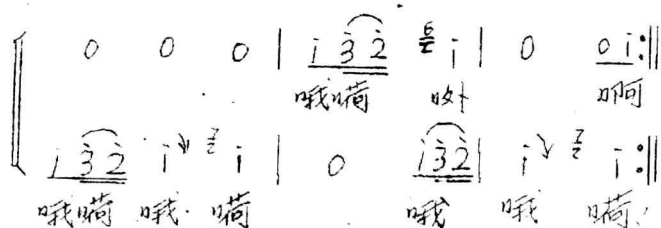 0 0 0 | i 3̇ 2̇ i | 0 0 i :‖
哦嗬 吙 啊
i 3̇ 2̇ i i | 0 i 3̇ 2̇ | i i :‖
哦嗬 哦 嗬 哦 哦 嗬